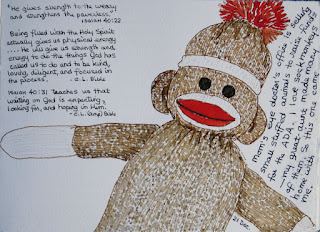 "He gives strength to the weary
and strengthens the powerless."
Isaiah 40:29
Being filled with the Holy Spirit
actually gives us physical energy
... He will give us strength and
energy to do the things God has
called us to do and to be kind,
loving, diligent, and focused in
the process.
Isaiah 40:31 teaches us that
waiting on God is expecting,
looking for, and hoping in Him.
Mom's eye doctor's office is selling
small stuffed animals to raise funds
for the ADA. I love sock monkeys
- my great aunt made many
of them. So this one came
home with
me.